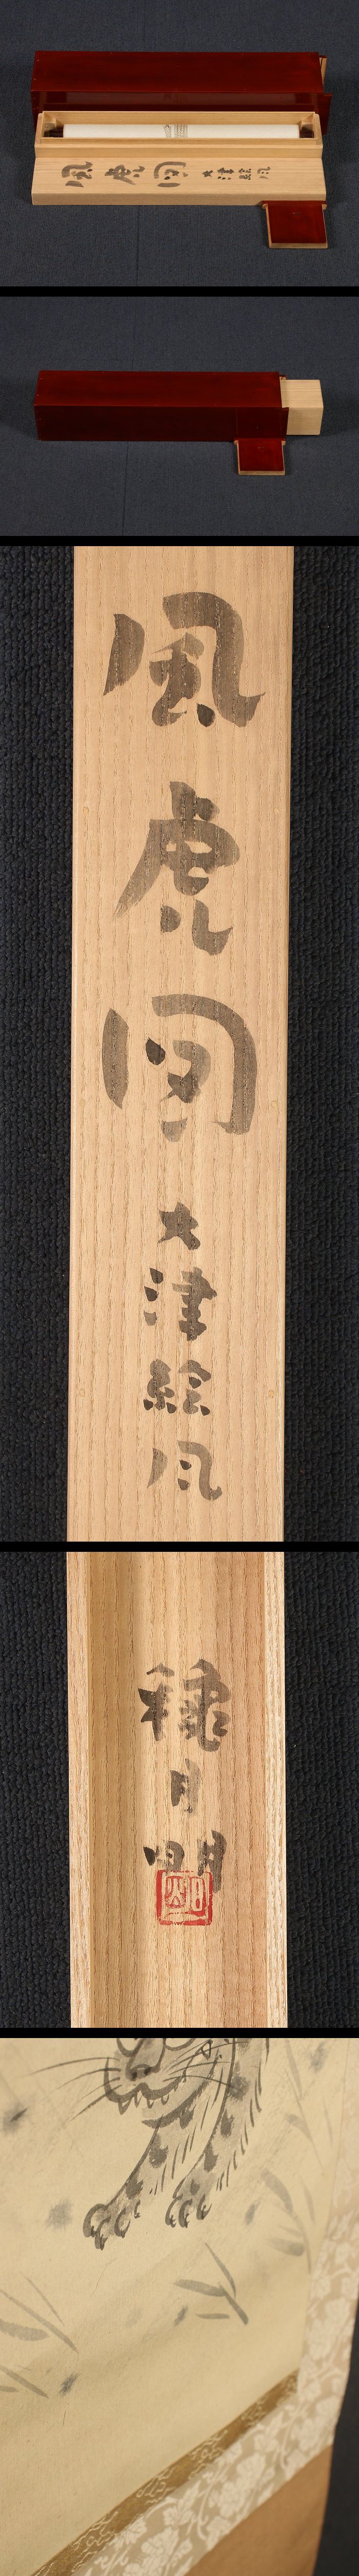 風虎図 大津絵風
風
虎
図
大
津
絵
風
穐
月
明